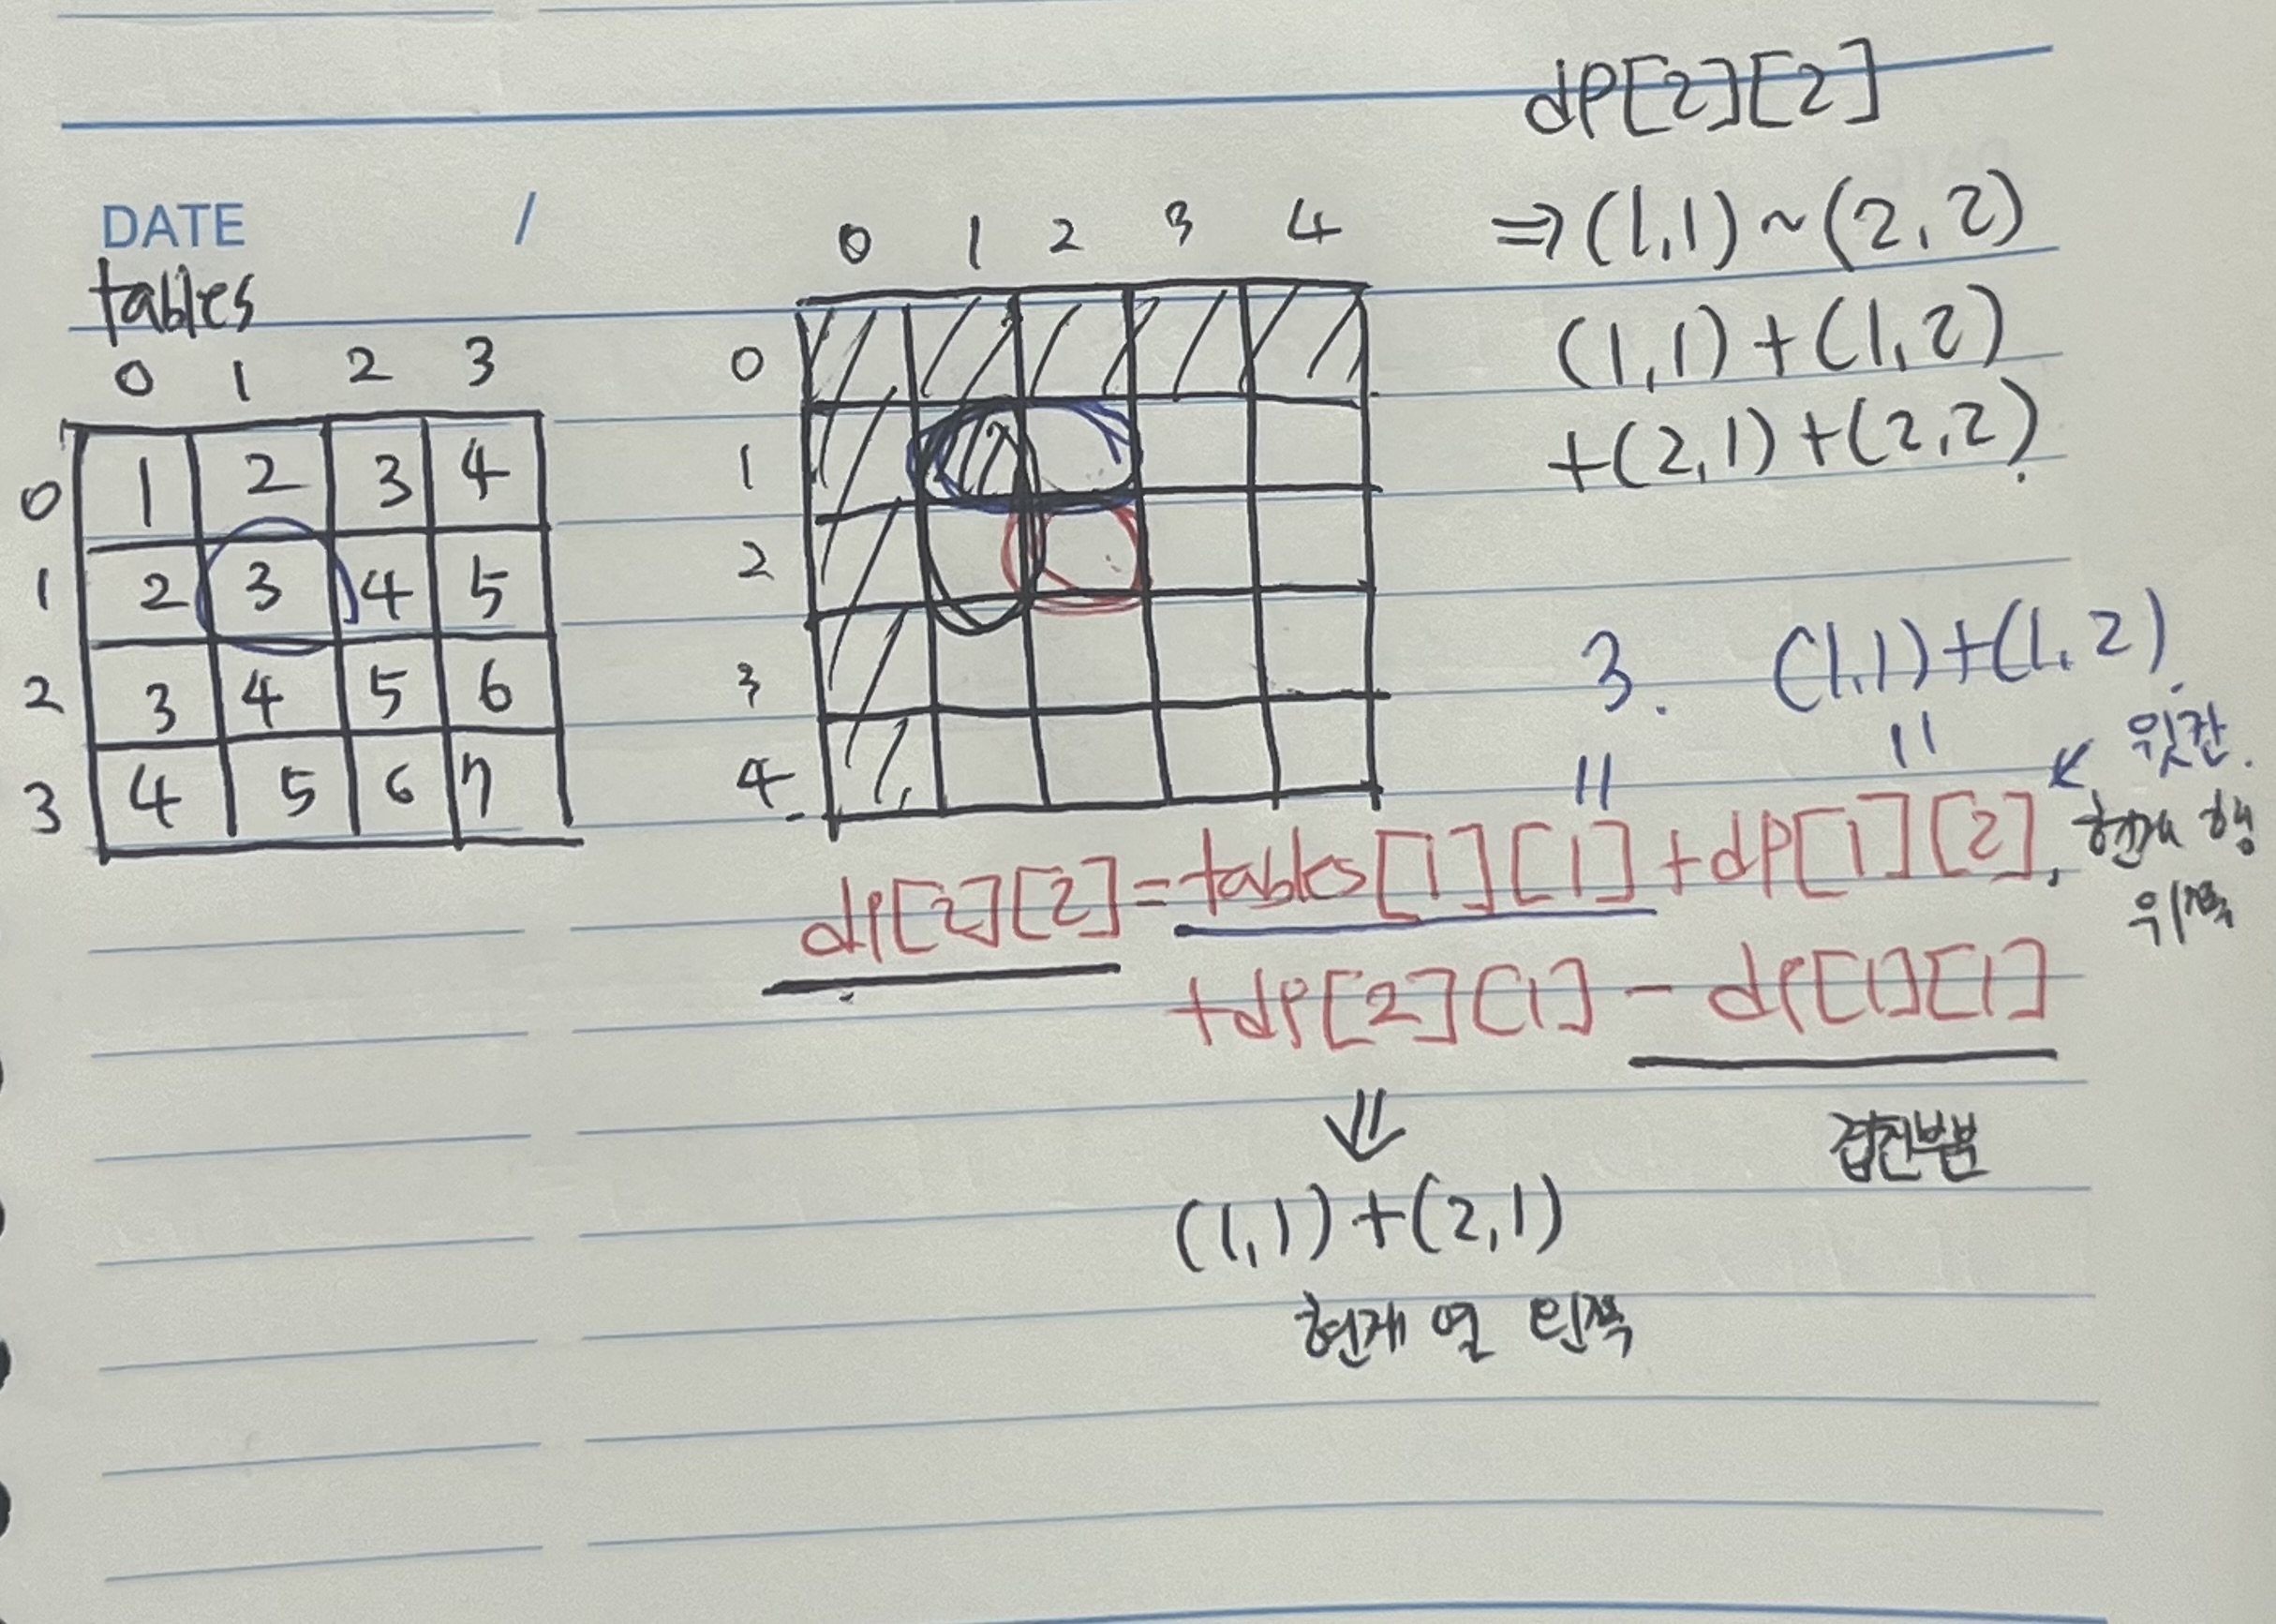 DATE /
tables
0 1 2 3
0 1 2 3 4
1 2 3 4 5
2 3 4 5 6
3 4 5 6 7
0 1 2 3 4
0
1
2
3
4
dp[2][2]
⇒(1,1)~(2,2)
(1,1)+(1,2)
+(2,1)+(2,2).
3. (1,1)+(1,2).
= =
↙ 윗칸.
현재 행
위쪽
dp[2][2]=tables[1][1]+dp[1][2].
+dp[2][1]-dp[1][1]
⇓ 겹친부분
(1,1)+(2,1)
현재 열 왼쪽